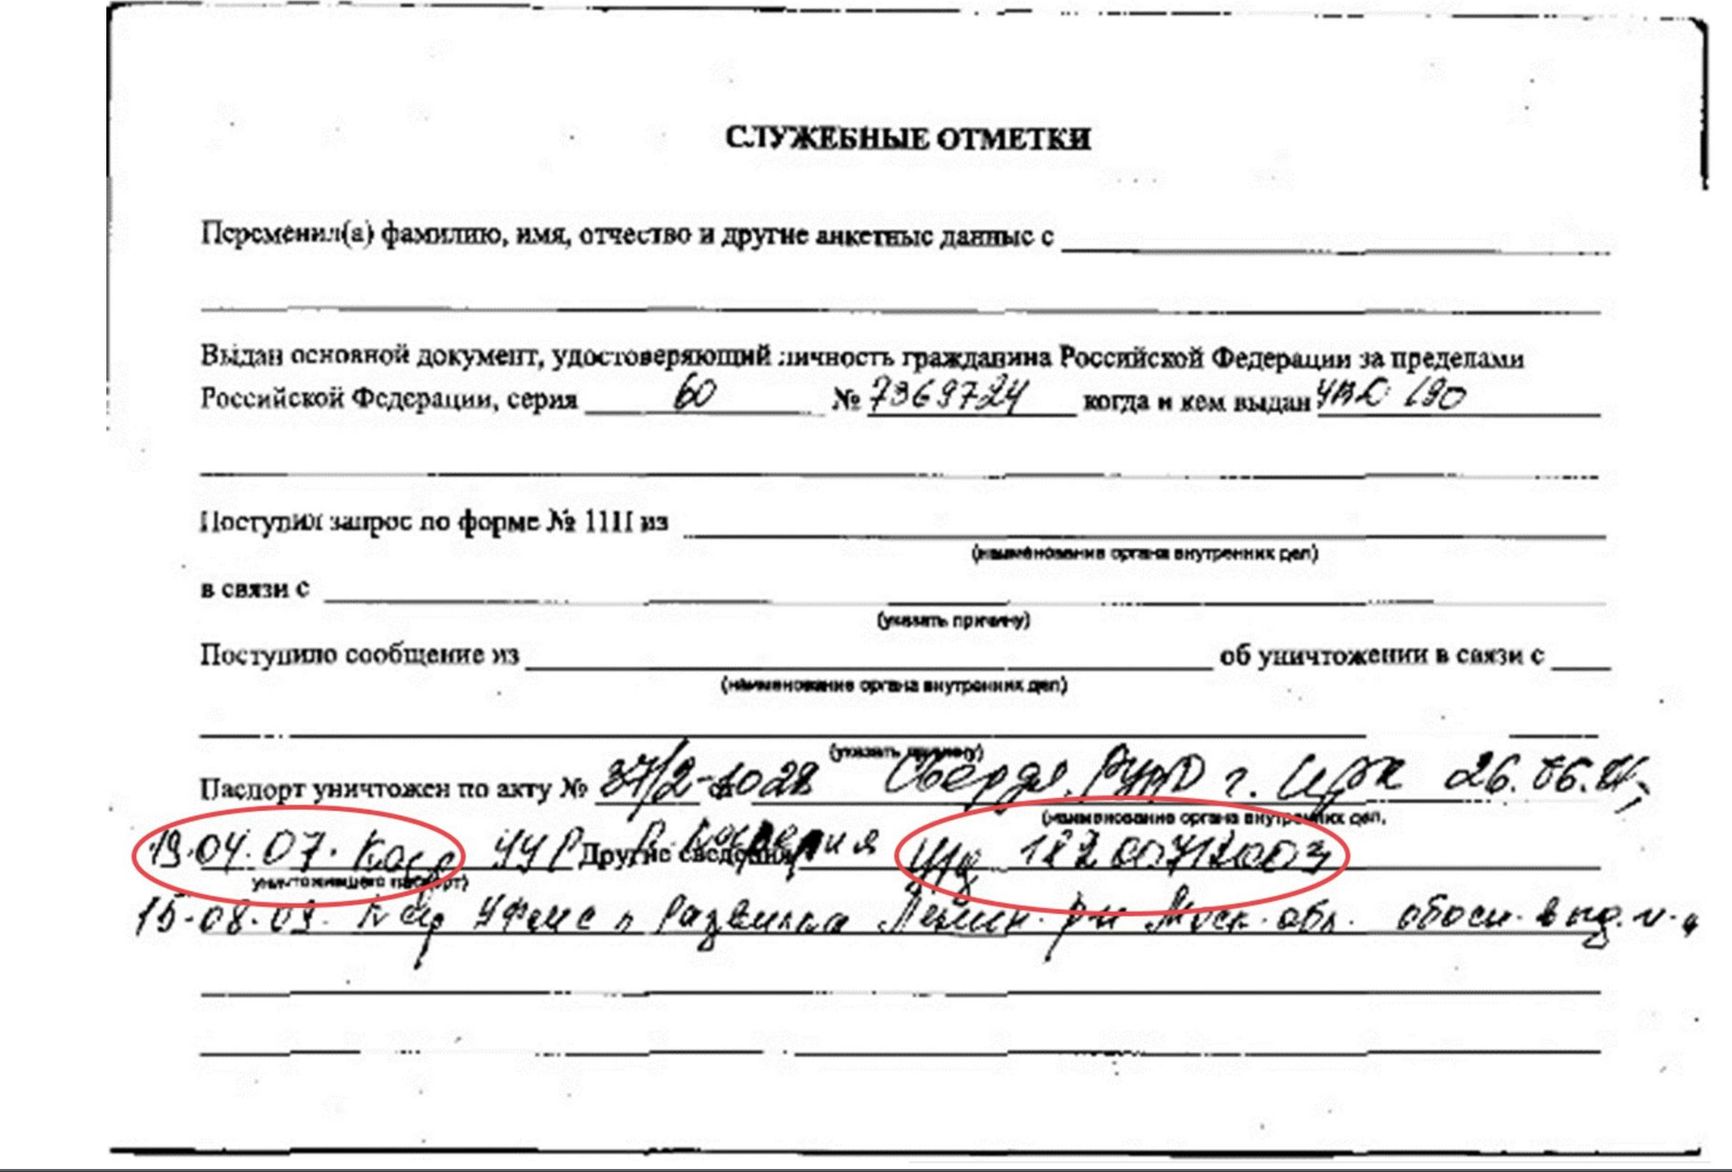 СЛУЖЕБНЫЕ ОТМЕТКИ
Переменил(а) фамилию, имя, отчество и другие анкетные данные с
Выдан основной документ, удостоверяющий личность гражданина Российской Федерации за пределами
Российской Федерации, серия 60 № 7369724 когда и кем выдан 190
Поступил запрос по форме № 1П из
(наименование органа внутренних дел)
в связи с
(указать причину)
Поступило сообщение из об уничтожении в связи с
(наименование органа внутренних дел)
(указать причину)
Паспорт уничтожен по акту № 37/2-1028 г. 26.06.
(наименование органа внутренних дел,
19.04.07. УУР Другие сведения
уничтожившего паспорт)
15.08.09. п Развилка Ленин. р-н Моск. обл.